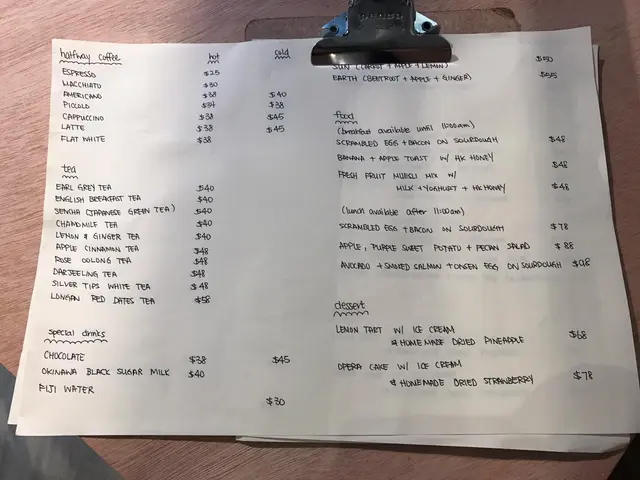 halfway coffee hot cold
ESPRESSO $25
MACCHIATO $30
AMERICANO $38 $40
PICCOLO $34 $38
CAPPUCCINO $38 $45
LATTE $38 $45
FLAT WHITE $38
tea
EARL GREY TEA $40
ENGLISH BREAKFAST TEA $40
SENCHA (JAPANESE GREEN TEA) $40
CHAMOMILE TEA $40
LEMON & GINGER TEA $40
APPLE CINNAMON TEA $48
ROSE OOLONG TEA $48
DARJEELING TEA $48
SILVER TIPS WHITE TEA $48
LONGAN RED DATES TEA $58
special drinks
CHOCOLATE $38 $45
OKINAWA BLACK SUGAR MILK $40
FIJI WATER $30
SUN (CARROT + APPLE + LEMON) $50
EARTH (BEETROOT + APPLE + GINGER) $55
food
(breakfast available until 11:00am)
SCRAMBLED EGG + BACON ON SOURDOUGH $48
BANANA + APPLE TOAST W/ HK HONEY $48
FRESH FRUIT MUESLI MIX W/
MILK + YOGHURT + HK HONEY $48
(lunch available after 11:00am)
SCRAMBLED EGG + BACON ON SOURDOUGH $78
APPLE, PURPLE SWEET POTATO + PECAN SALAD $88
AVOCADO + SMOKED SALMON + ONSEN EGG ON SOURDOUGH $98
dessert
LEMON TART W/ ICE CREAM
& HOMEMADE DRIED PINEAPPLE $68
OPERA CAKE W/ ICE CREAM
& HOMEMADE DRIED STRAWBERRY $78